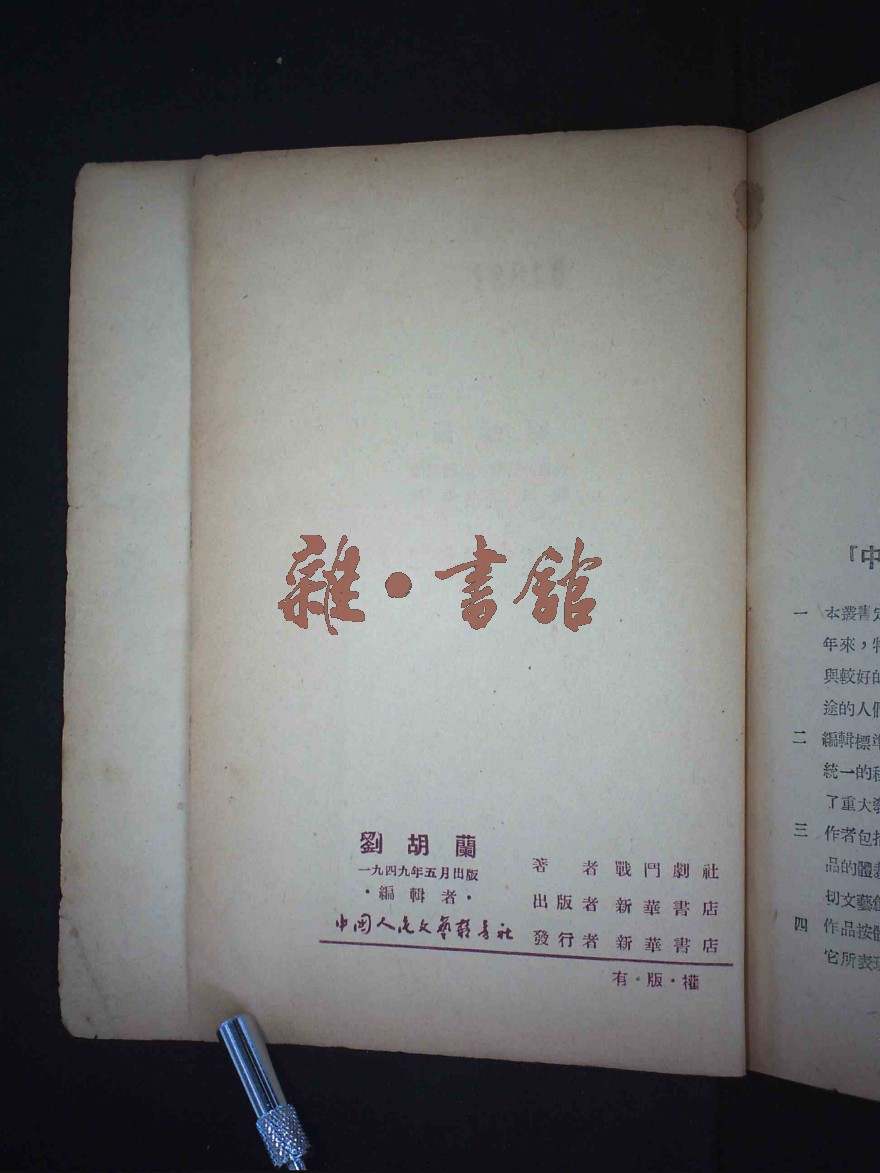 雜·書館
劉胡蘭
一九四九年五月出版
·編輯者·
中国人民文艺丛书社
著者 戰鬥劇社
出版者 新華書店
發行者 新華書店
有·版·權
『中
一 本叢書定
年來，特
與較好的
途的人們
二 編輯標準
統一的
了重大
三 作者包括
品的體裁
切文藝創
四 作品按體
它所表現